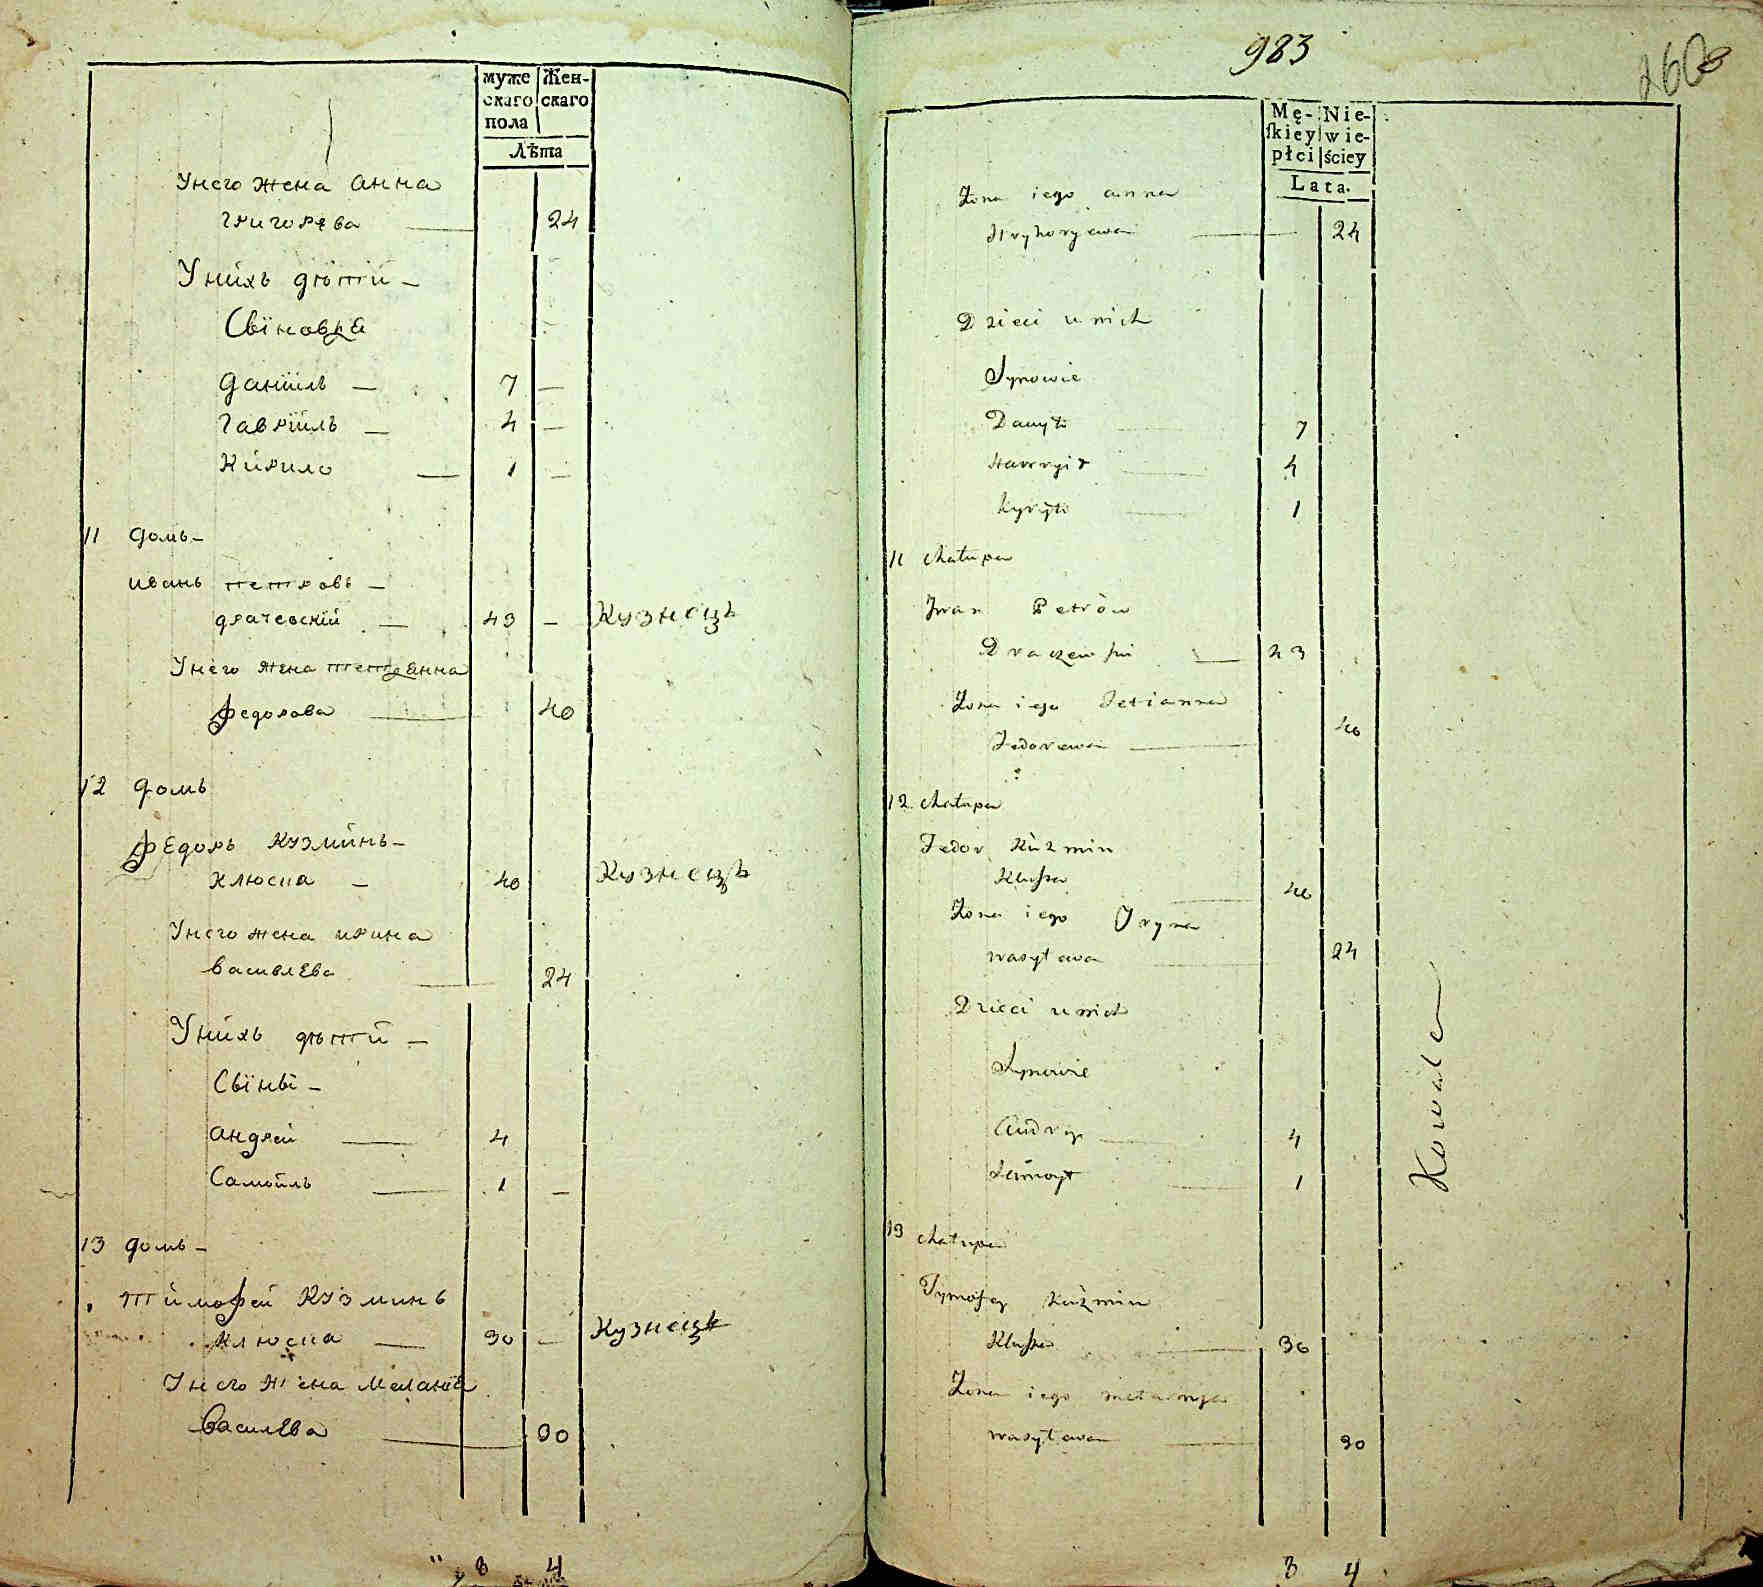 муже Жен-
скаго скаго
пола
Лѣта
Унего жена анна
григорева 24
Унихъ дѣти -
Сыновъя
данииль - 7 -
гавриилъ - 4 -
Кирило - 1 -
11 домъ -
иванъ петровъ -
драчевский - 43 - Кузнецъ
Унего жена тетеянна
федорова 40
12 домъ
федоръ кузминъ -
клюска - 40 Кузнецъ
Унего жена ирина
василева 24
Унихъ дѣти -
Сыны -
андрей 4
Самоилъ 1 -
13 домъ -
тимофей кузминъ
клюска 30 - Кузнецъ
Унего жена меланія
василева 30
8 4
983
2608
Mę- Nie-
ſkiey wie-
płci ściey
Lata.
Żona iego anna
Hryhoryewa 24
Dzieci u nich
Synowie
Danyło 7
Hawryił 4
Kyryło 1
11 chałupa
Jwan Petrów
Draczewſki 43
Żona iego Tetianna
Fedorowa 40
12 chałupa
Fedor Kuźmin
Kluſka 40
Żona iego Jryna
wasylewa 24
Dzieci u nich
Synowie
Andrey 4
Samoył 1
Kowale
13 chałupa
Tymofey Kuźmin
Kluſka 30
Żona iego mełanya
wasylewa 30
8 4